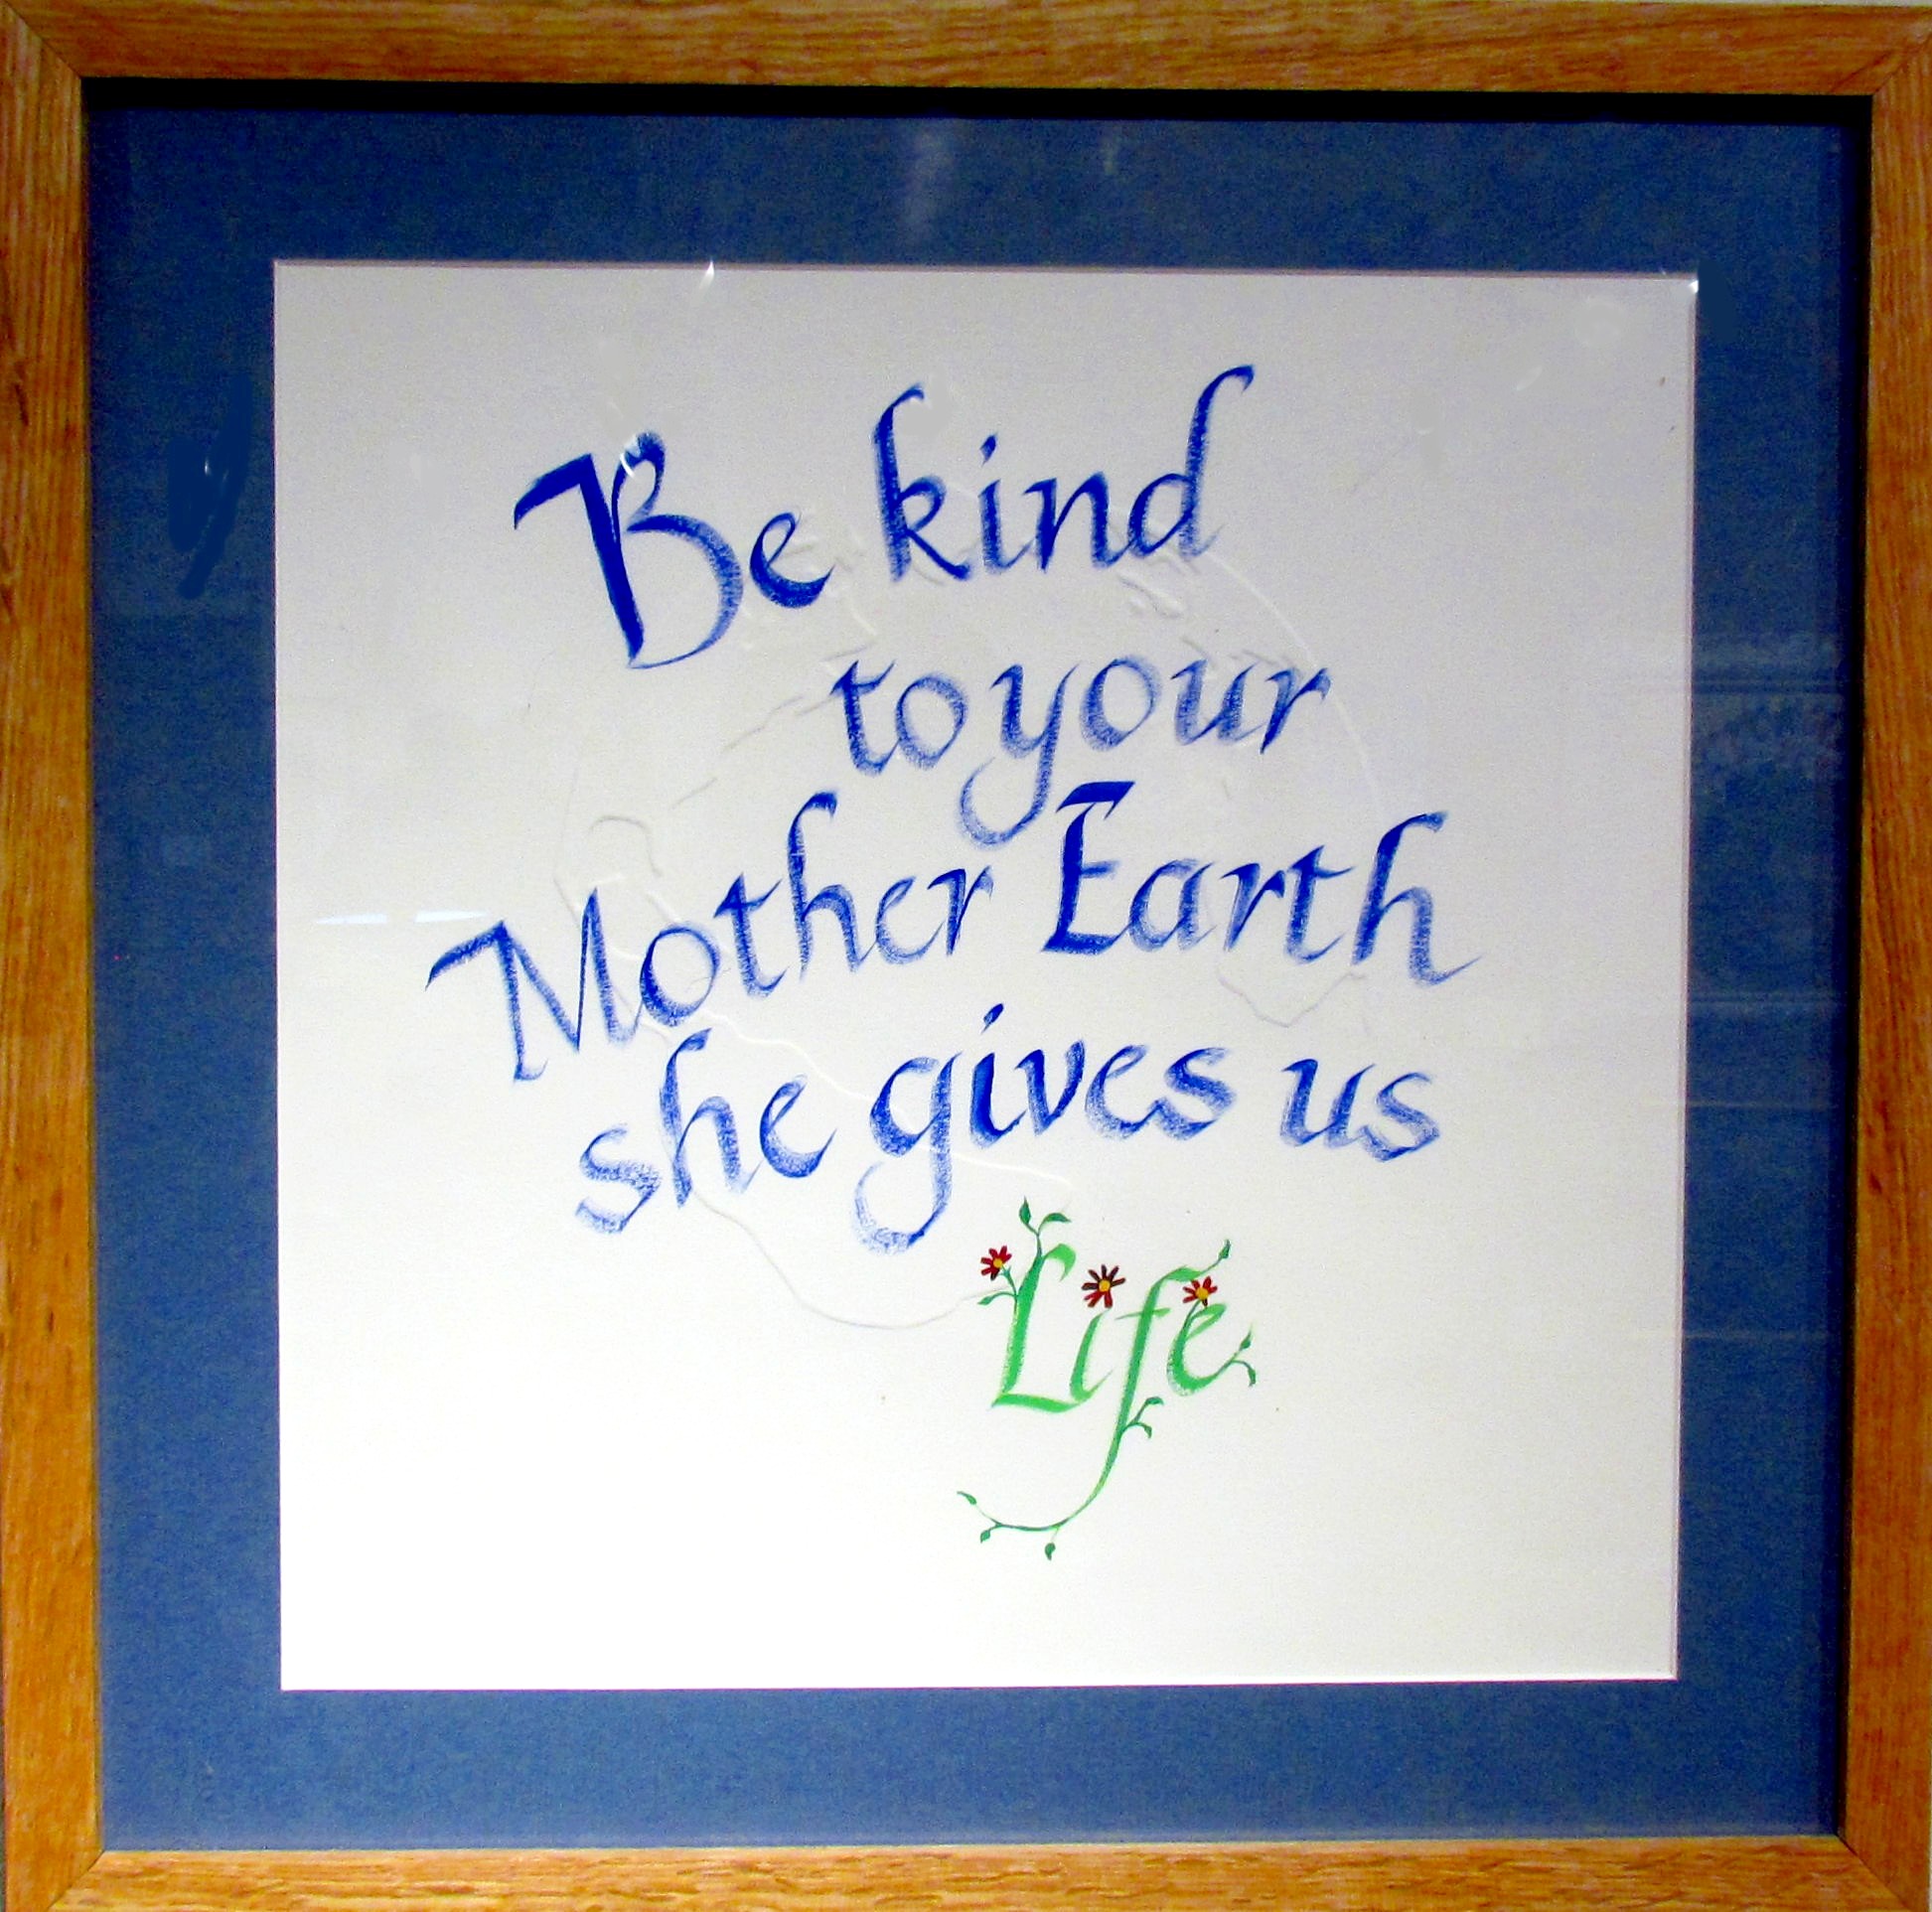 Be kind
to your
Mother Earth
she gives us
Life